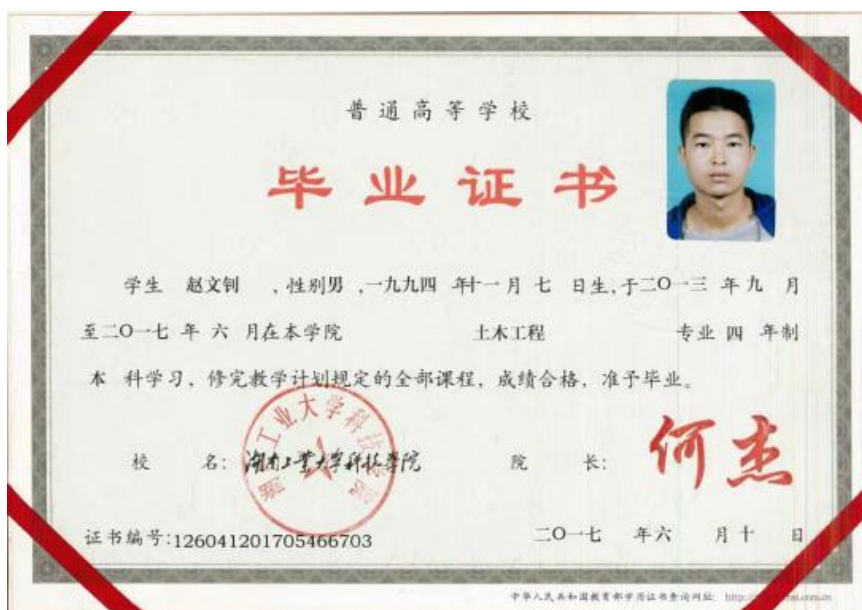 普通高等学校
毕业证书
学生 赵文钊 ,性别男 ,一九九四 年十一月 七 日生,于二〇一三 年 九 月
至二〇一七 年 六 月在本学院 土木工程 专业 四 年制
本 科学习，修完教学计划规定的全部课程，成绩合格，准予毕业。
校 名: 湖南工业大学科技学院 院 长: 何杰
湖南工业大学科技学院
证书编号:126041201705466703 二〇一七 年六 月十 日
中华人民共和国教育部学历证书查询网址: http://